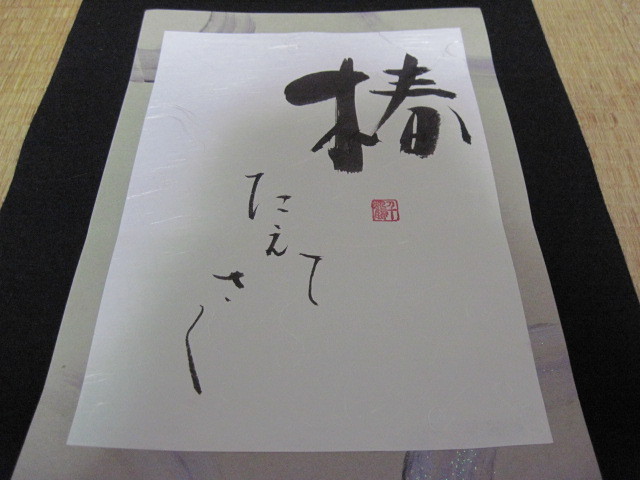 椿
たえて
さく